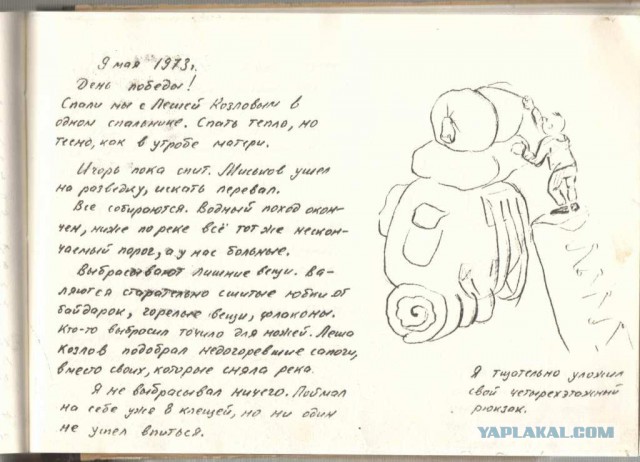 9 мая 1973г.
День победы!
Спали мы с Лёшей Козловым в
одном спальнике. Спать тепло, но
тесно, как в утробе матери.
Игорь пока спит. Мысьнов ушел
на разведку, искать перевал.
Все собираются. Водный поход окон-
чен, ниже по реке всё тот же нескон-
чаемый порог, а у нас больные.
Выбрасывают лишние вещи. Ва-
ляются старательно сшитые юбки от
байдарок, горелые вещи, флаконы.
Кто-то выбросил точило для ножей. Леша
Козлов подобрал недогоревшие сапоги,
вместо своих, которые сняла река.
Я не выбрасывал ничего. Поймал
на себе уже 8 клещей, но ни один
не успел впиться.
Я тщательно уложил
свой четырехэтажный
рюкзак.
YAPLAKAL.COM